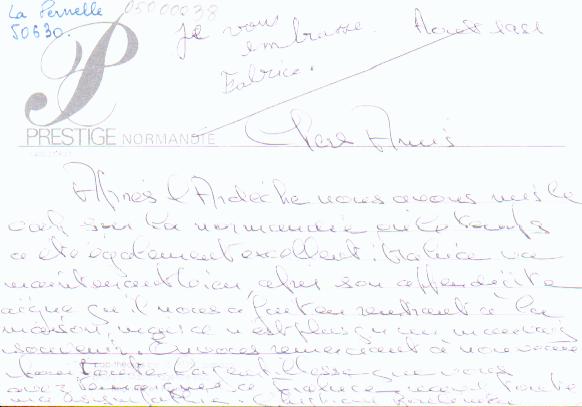 La Pernelle
50630.
05000038
Je vous
embrasse.
Fabrice.
Août 1981
PRESTIGE NORMANDIE
Chers Amis
Après l'Ardèche nous avons mis le
cap sur la normandie où le temps
a été également excellent. Fabrice va
maintenant bien, après son appendicite
aigue qu'il nous a fait en rentrant à la
maison, mais ce n'est plus qu'un mauvais
souvenir. En vous remerciant à nouveau
la gentillesse que vous
avez